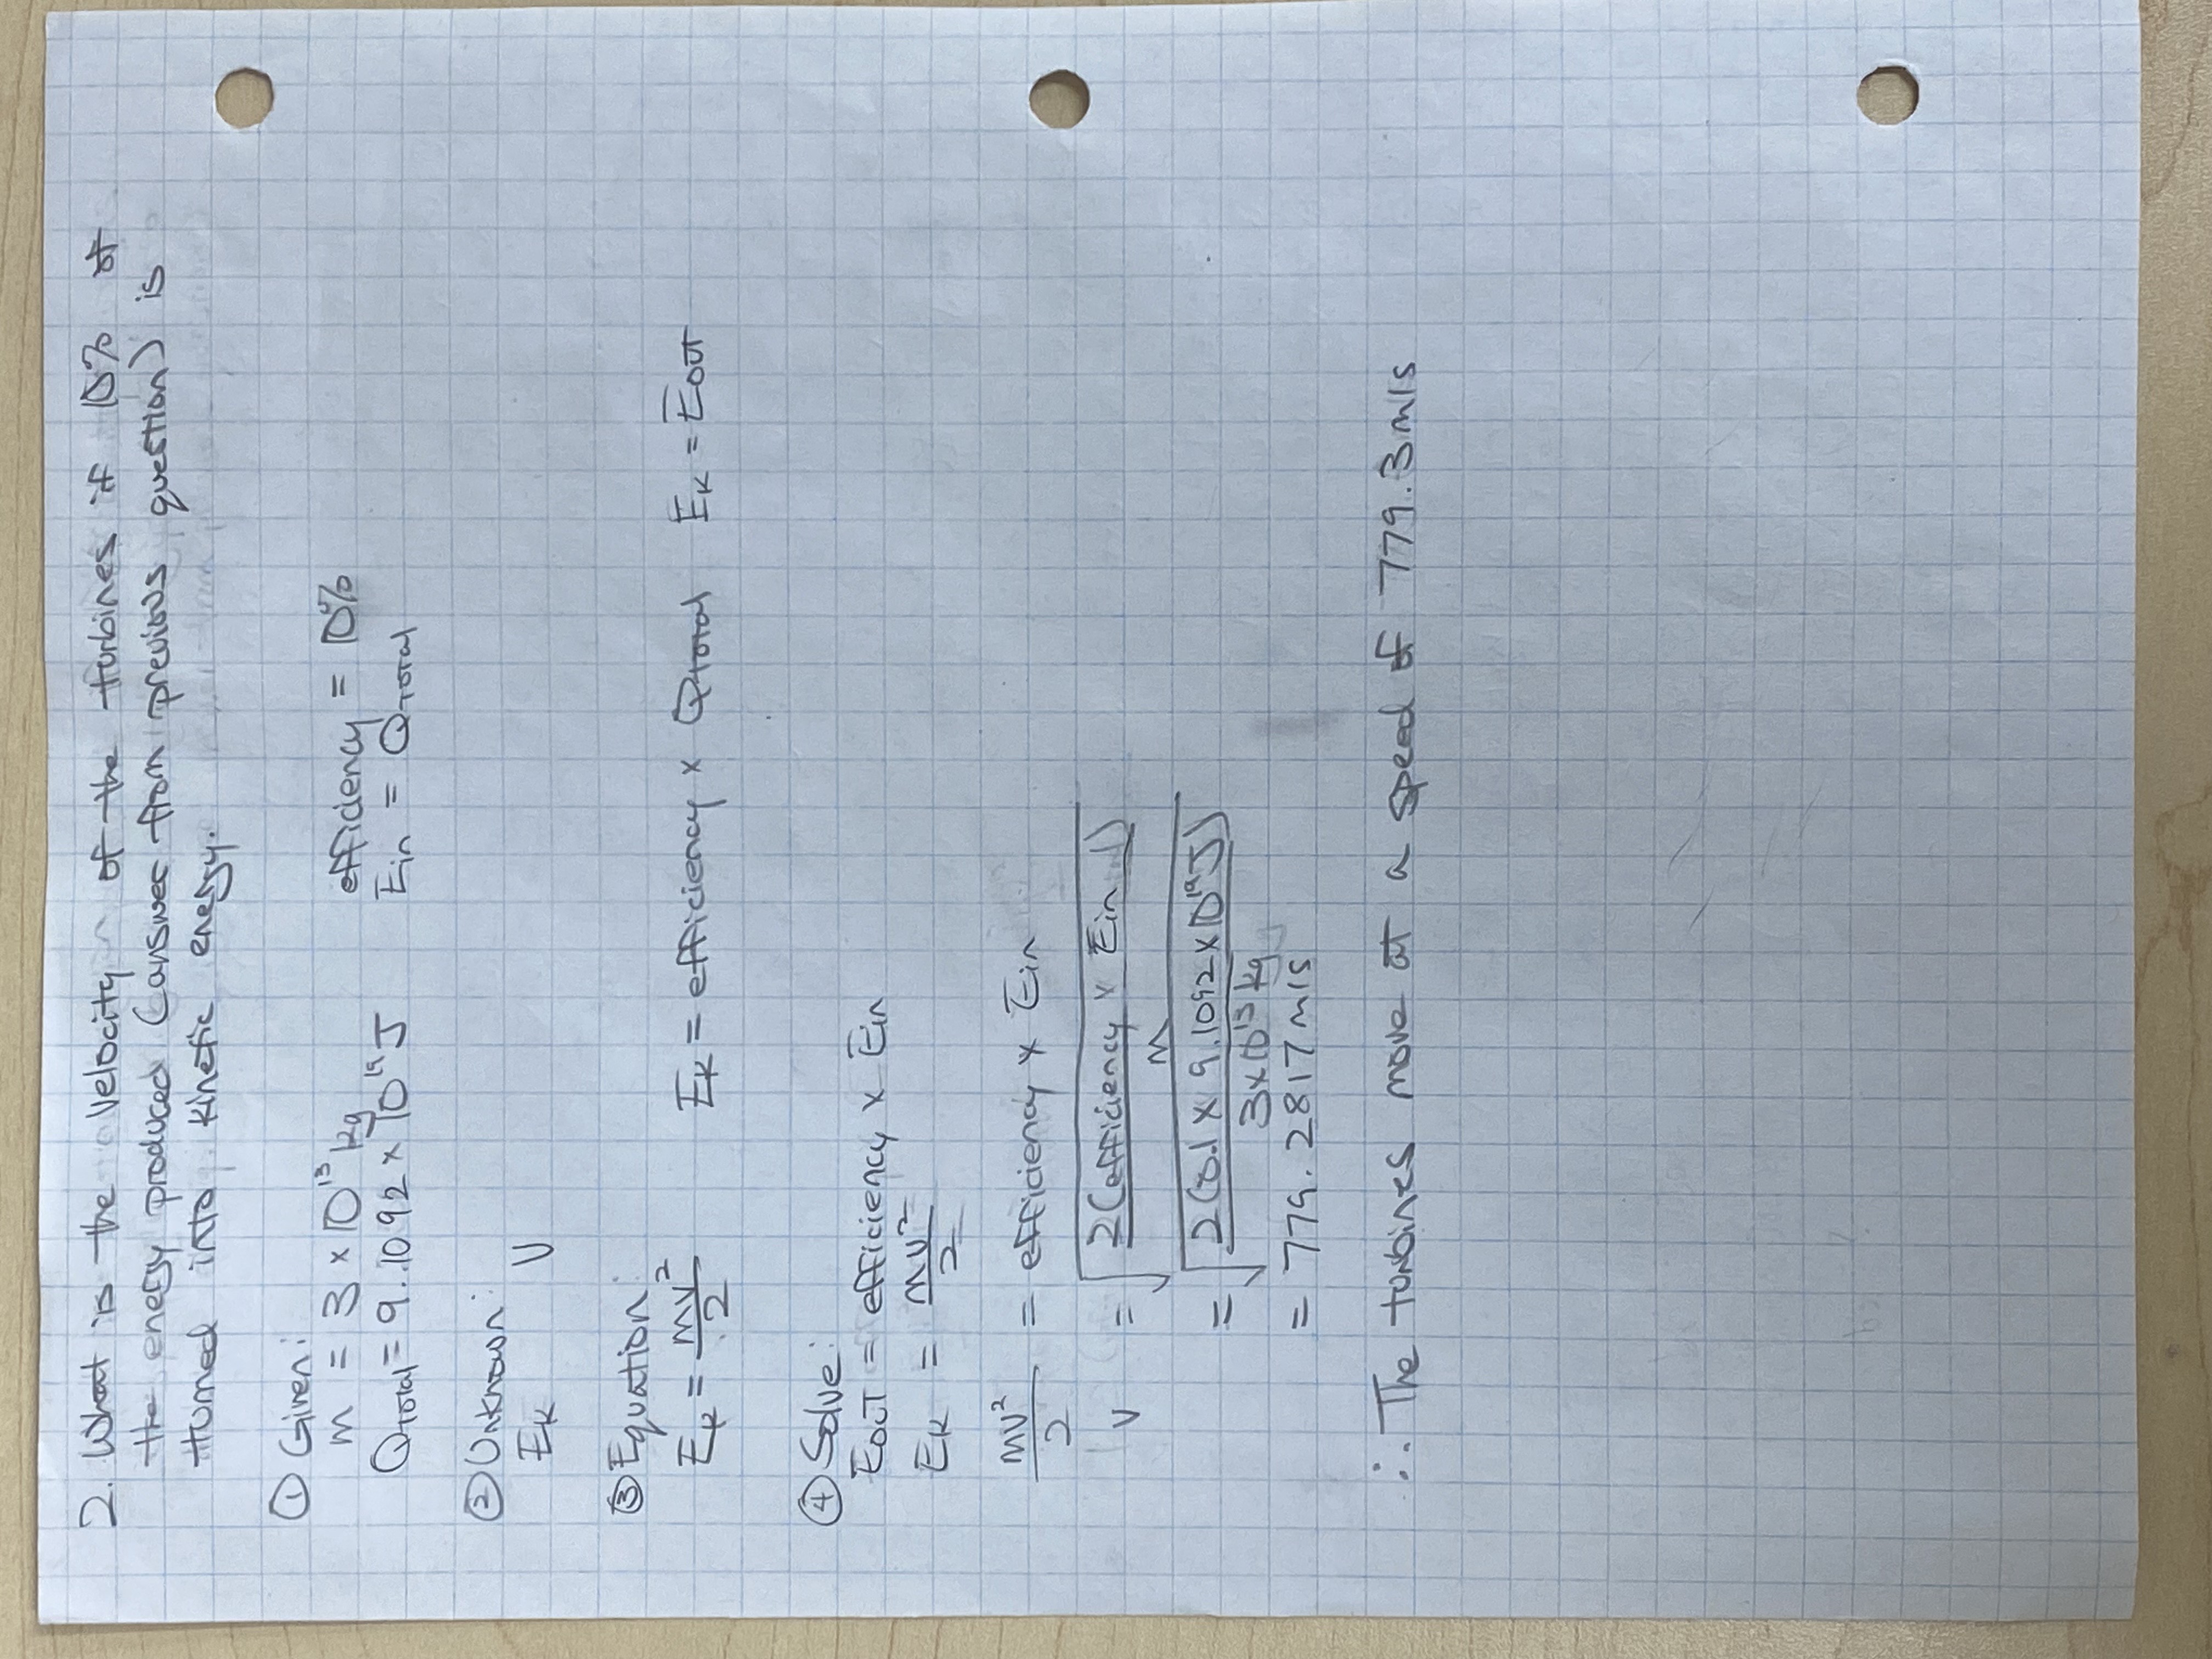 2. What is the velocity of the turbines if 10% of
the energy produced (answer from previous question) is
turned into kinetic energy.
① Given:
m = 3 × 10¹³ kg efficiency = 10%
Qtotal = 9.1092 × 10¹⁹ J Ein = Qtotal
② Unknown:
Ek v
③ Equation:
Ek = mv²/2 Ek = efficiency × Qtotal Ek = Eout
④ Solve:
Eout = efficiency × Ein
Ek = mv²/2
mv²/2 = efficiency × Ein
v = √(2(efficiency × Ein)/m)
= √(2(0.1 × 9.1092 × 10¹⁹ J)/3×10¹³ kg)
= 779.2817 m/s
∴ The turbines move at a speed of 779.3 m/s